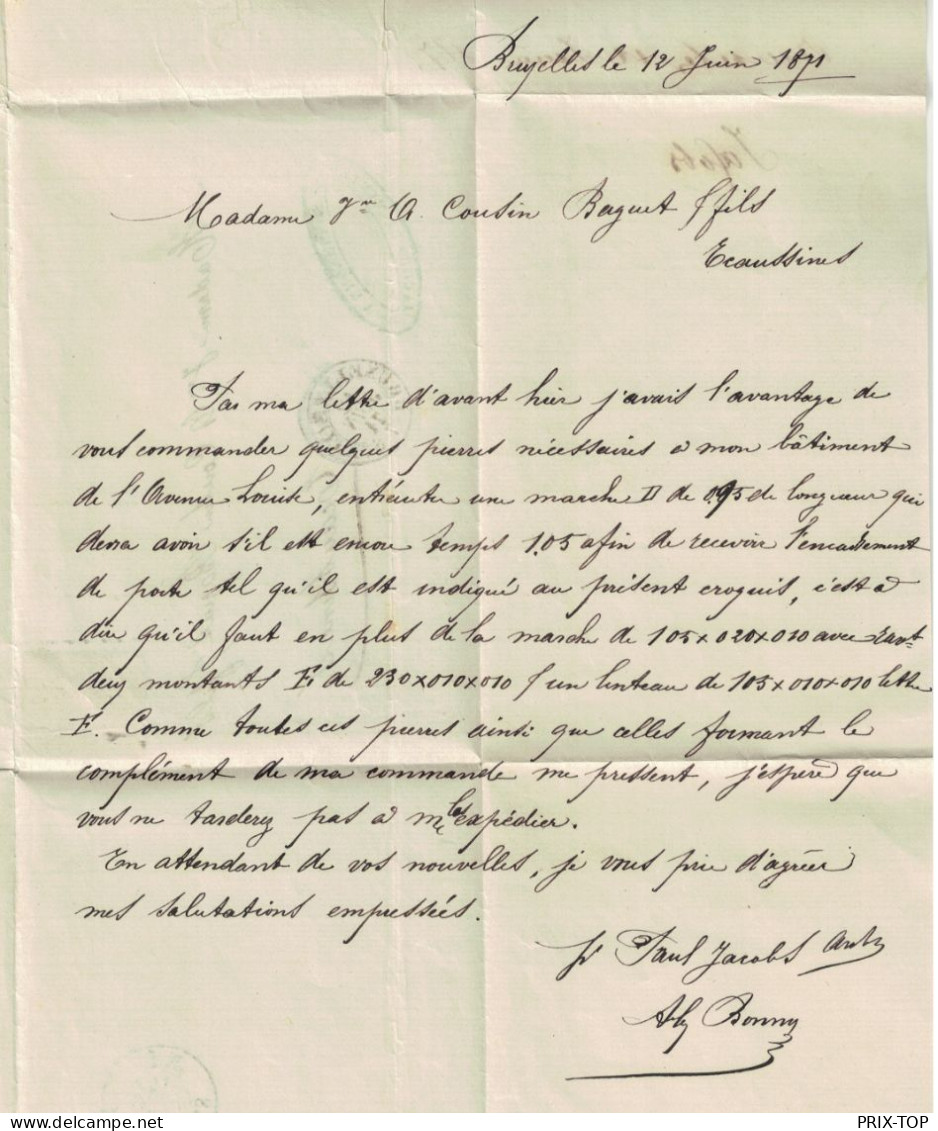 Bruxelles le 12 Juin 1871
Madame Vve A. Cousin Baguet & fils
Ecaussines
Par ma lettre d'avant hier j'avais l'avantage de
vous commander quelques pierres nécessaires à mon bâtiment
de l'Avenue Louise, entr'autre une marche D de 0.95 de longueur qui
devra avoir s'il est encore temps 1.05 afin de recevoir l'encadrement
de porte tel qu'il est indiqué au présent croquis, c'est à
dire qu'il faut en plus de la marche de 105 x 020 x 020 avec
deux montants E de 230 x 010 x 010 & un linteau de 105 x 010 x 010 lettre
F. Comme toutes ces pierres ainsi que celles formant le
complément de ma commande me pressent, j'espère que
vous ne tarderez pas à me les expédier.
En attendant de vos nouvelles, je vous prie d'agréer
mes salutations empressées.
pr Paul Jacobs Archte
Bonny
PRIX-TOP